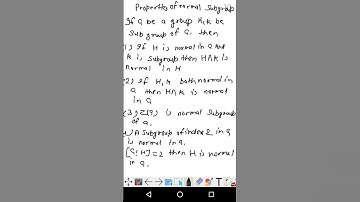 Properties of normal Subgroup
If G be a group H, K be
Subgroup of G. then
(1) If H is normal in G and
K is Subgroup then H∩K is
normal in H
(2) If H, K both normal in
G then H∩K is normal
in G
(3) Z(G) is normal Subgroup
of G.
4) A Subgroup of index 2 in G
is normal in G.
[G:H]=2 then H is normal
in G.